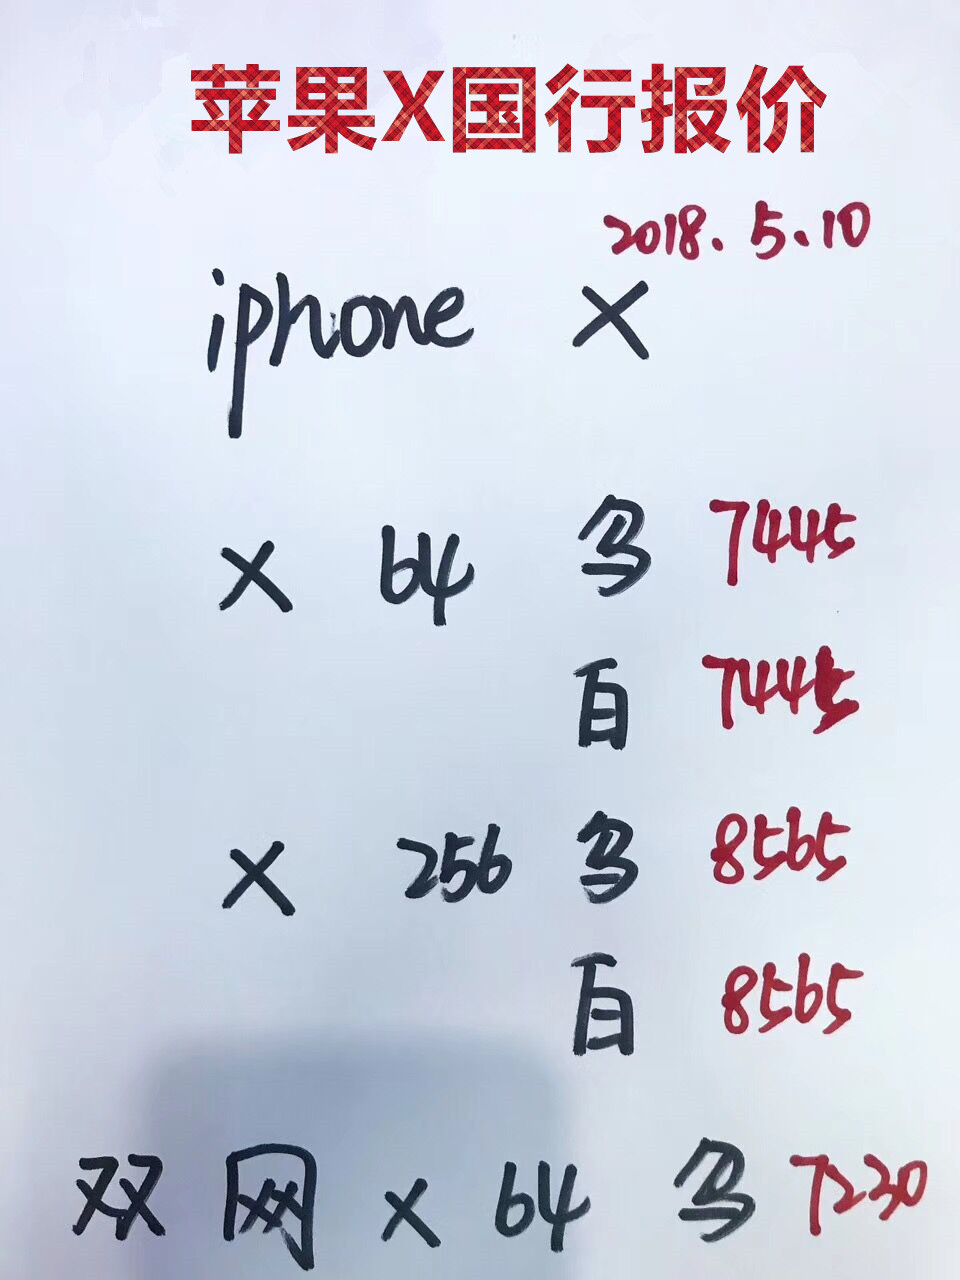 苹果X国行报价
2018.5.10
iphone X
X 64 乌 7445
白 7445
X 256 乌 8565
白 8565
双网 X 64 乌 7230